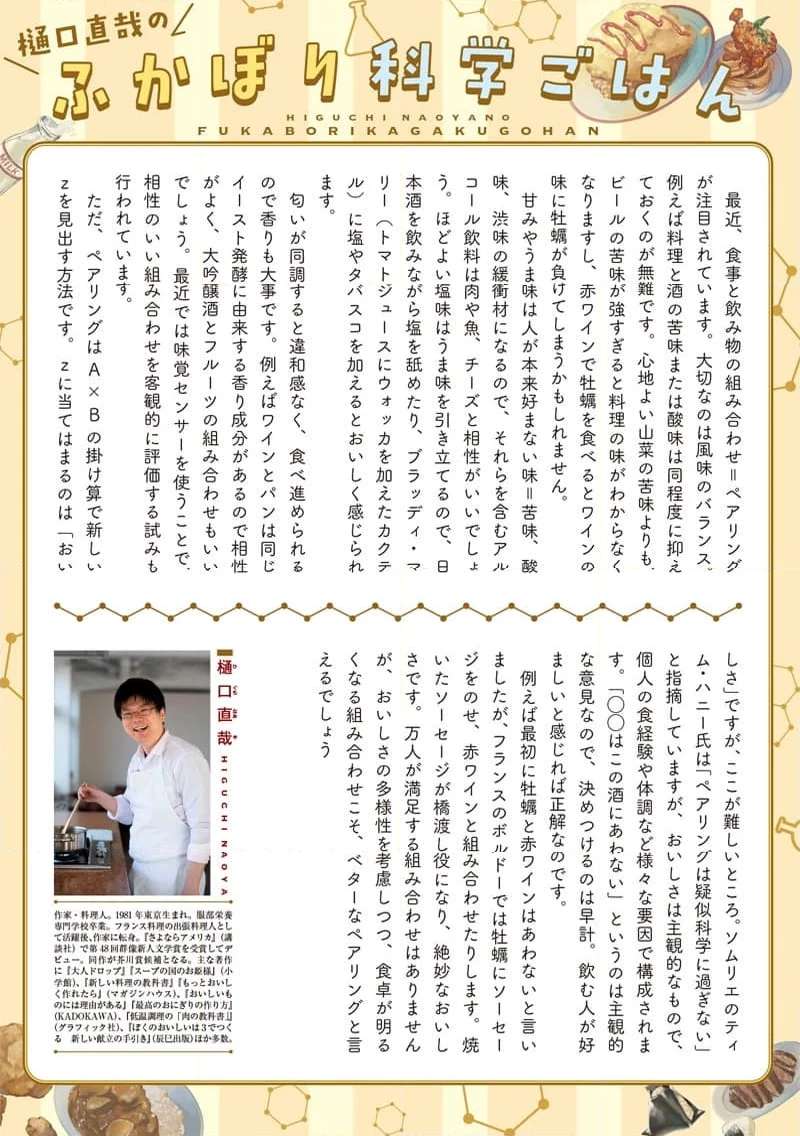 樋口直哉の
ふかぼり科学ごはん
HIGUCHI NAOYANO
FUKABORIKAGAKUGOHAN
MILK
最近、食事と飲み物の組み合わせ＝ペアリング
が注目されています。大切なのは風味のバランス。
例えば料理と酒の苦味または酸味は同程度に抑え
ておくのが無難です。心地よい山菜の苦味よりも、
ビールの苦味が強すぎると料理の味がわからなく
なりますし、赤ワインで牡蠣を食べるとワインの
味に牡蠣が負けてしまうかもしれません。
甘みやうま味は人が本来好まない味＝苦味、酸
味、渋味の緩衝材になるので、それらを含むアル
コール飲料は肉や魚、チーズと相性がいいでしょ
う。ほどよい塩味はうま味を引き立てるので、日
本酒を飲みながら塩を舐めたり、ブラッディ・マ
リー（トマトジュースにウォッカを加えたカクテ
ル）に塩やタバスコを加えるとおいしく感じられ
ます。
匂いが同調すると違和感なく、食べ進められる
ので香りも大事です。例えばワインとパンは同じ
イースト発酵に由来する香り成分があるので相性
がよく、大吟醸酒とフルーツの組み合わせもいい
でしょう。最近では味覚センサーを使うことで、
相性のいい組み合わせを客観的に評価する試みも
行われています。
ただ、ペアリングはA×Bの掛け算で新しい
zを見出す方法です。zに当てはまるのは「おい
しさ」ですが、ここが難しいところ。ソムリエのティ
ム・ハニー氏は「ペアリングは疑似科学に過ぎない」
と指摘していますが、おいしさは主観的なもので、
個人の食経験や体調など様々な要因で構成されま
す。「〇〇はこの酒にあわない」というのは主観的
な意見なので、決めつけるのは早計。飲む人が好
ましいと感じれば正解なのです。
例えば最初に牡蠣と赤ワインはあわないと言い
ましたが、フランスのボルドーでは牡蠣にソーセー
ジをのせ、赤ワインと組み合わせたりします。焼
いたソーセージが橋渡し役になり、絶妙なおいし
さです。万人が満足する組み合わせはありません
が、おいしさの多様性を考慮しつつ、食卓が明る
くなる組み合わせこそ、ベターなペアリングと言
えるでしょう
樋口直哉 HIGUCHI NAOYA
ひぐちなおや
作家・料理人。1981年東京生まれ。服部栄養
専門学校卒業。フランス料理の出張料理人とし
て活躍後、作家に転身。『さよならアメリカ』（講
談社）で第48回群像新人文学賞を受賞してデ
ビュー。同作が芥川賞候補となる。主な著作
に『大人ドロップ』『スープの国のお姫様』（小
学館）、『新しい料理の教科書』『もっとおいし
く作れたら』（マガジンハウス）、『おいしいも
のには理由がある』『最高のおにぎりの作り方』
（KADOKAWA）、『低温調理の「肉の教科書」』
（グラフィック社）、『ぼくのおいしいは3でつく
る　新しい献立の手引き』（辰巳出版）ほか多数。